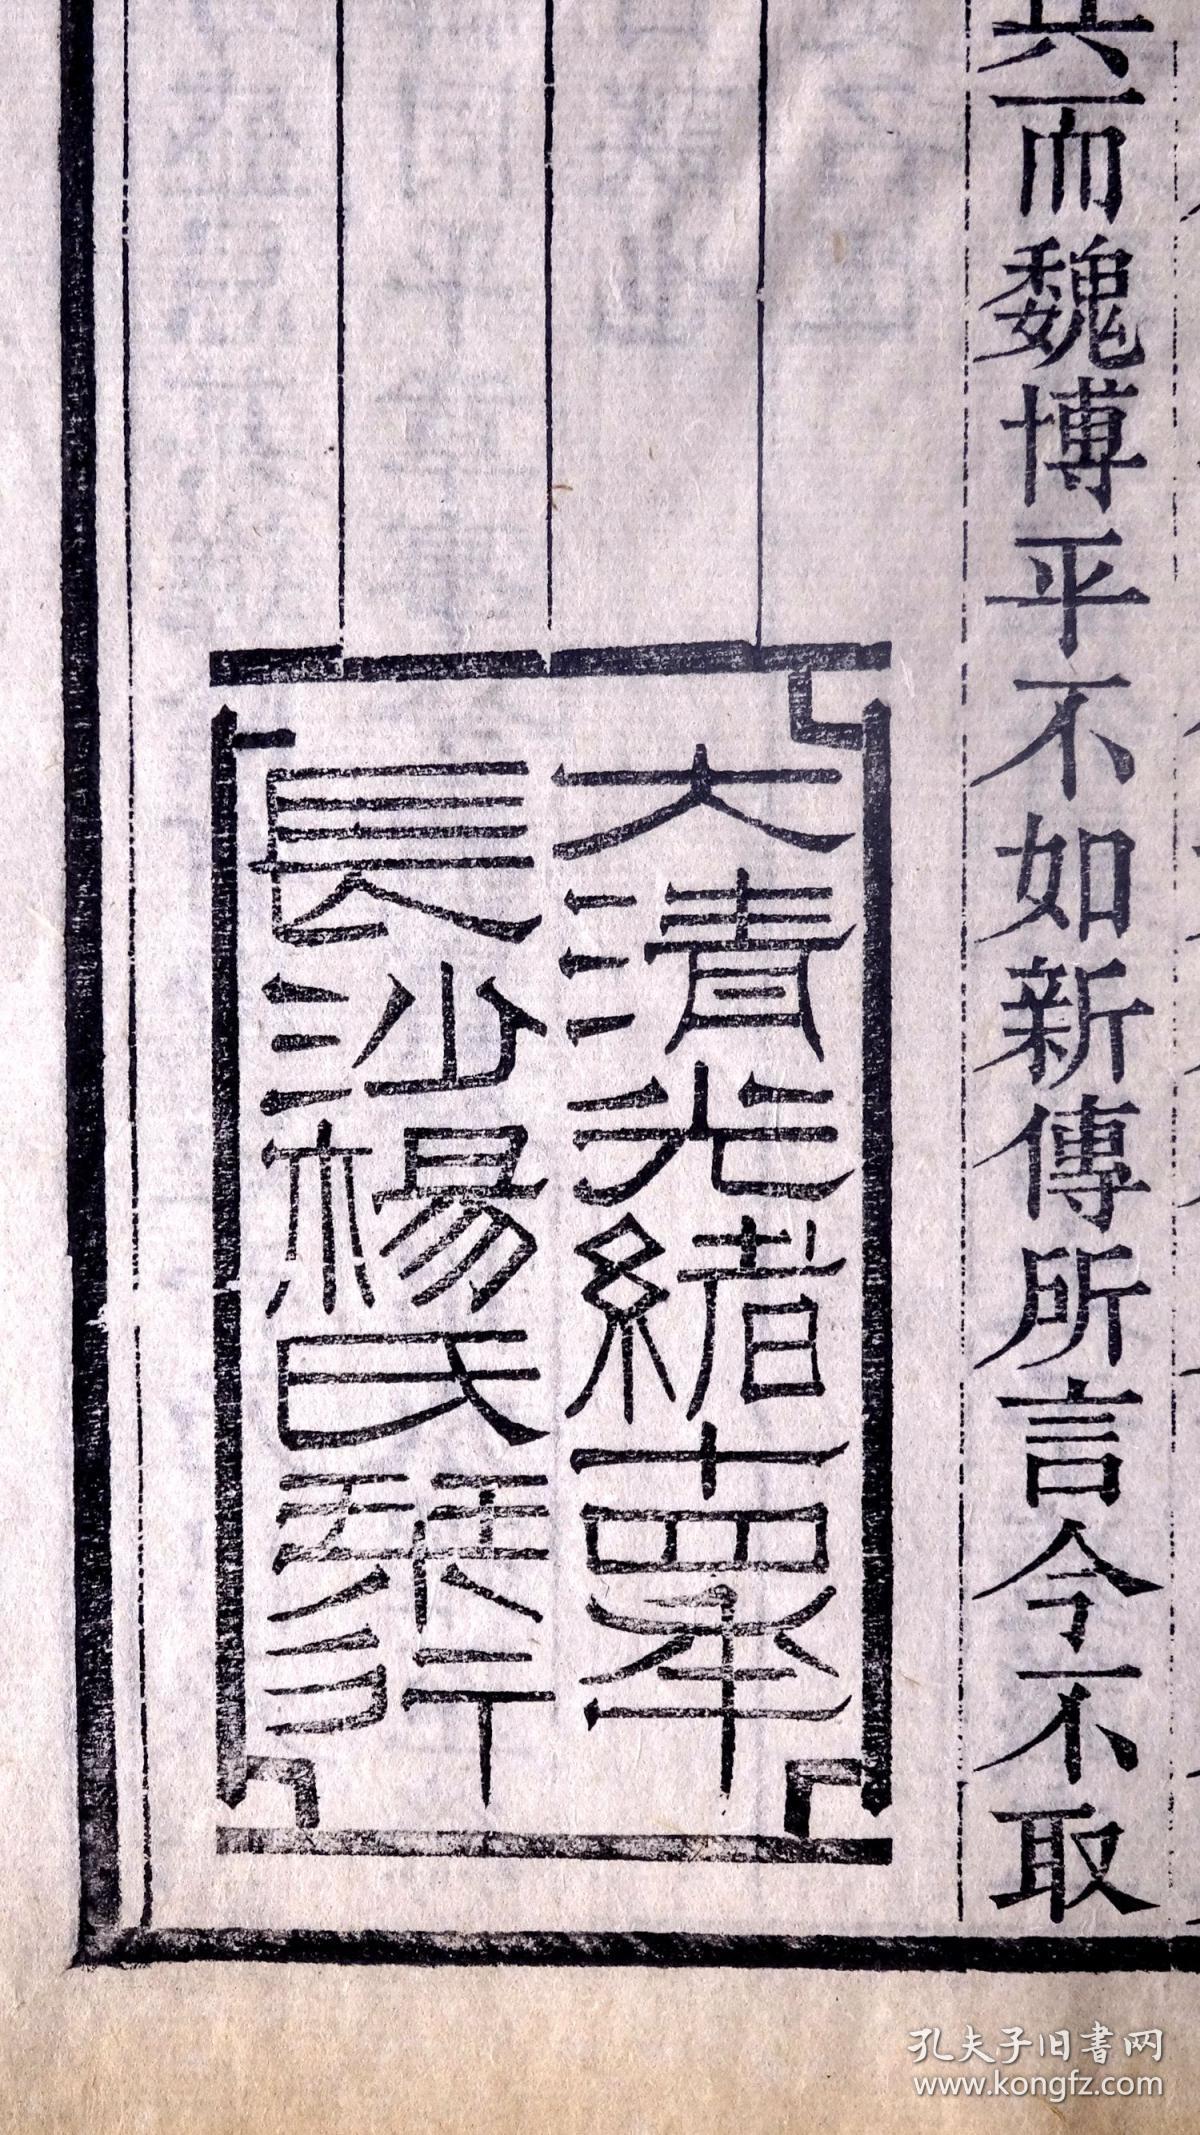 兵而魏博平不如新傳所言今不取
大清光緒十四年
長沙楊氏琹行
孔夫子旧書网
www.kongfz.com